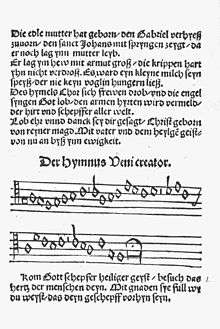 Die edle mutter hat geborn/ den Gabriel verhyeß
zuuorn/ den sanct Johans mit spryngen zeygt/ da
er noch lag ynn mutter leyb.
Er lag ym hew mit armut groß/ die krippen hart
yhn nicht verdroß. Es ward eyn kleyne milch seyn
speyß/ der nie keyn voglin hungern ließ.
Des hymels Chor sich frewen drob/ und die engel
syngen Got lob/ den armen hyrten wird vermeld/
der hirt und schepffer aller welt.
Lob ehr unnd danck sey dir gesagt/ Christ geborn
von reyner magd. Mit vater und dem heylgē geist/
von nu an byß ynn ewigkeit.
Der Hymnus Veni creator.
Kom Gott schepfer heiliger geyst/ besuch das
hertz der menschen deyn. Mit gnaden sye full wi
du weyst/ das deyn geschepff vorhyn seyn.